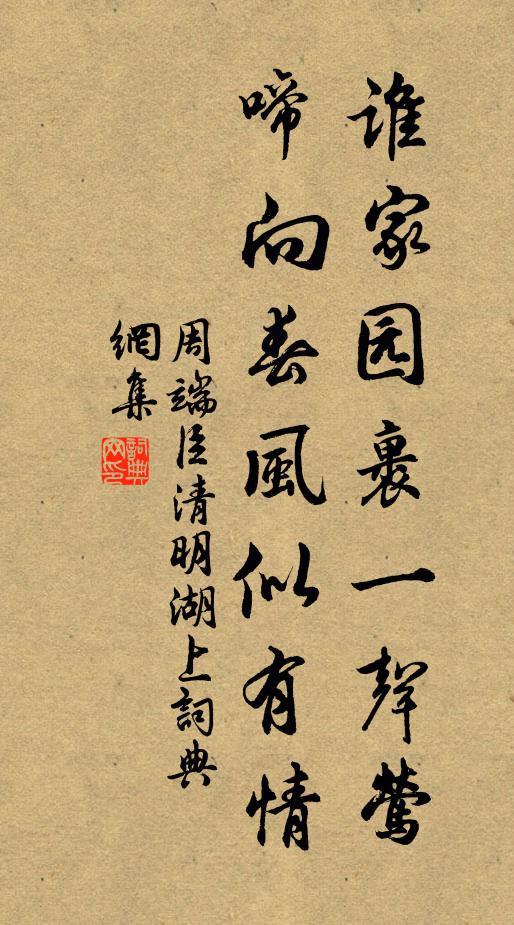 谁家园裹一聲莺
啼向春風似有情
周端臣清明湖上詞典
網集
詞典
网印